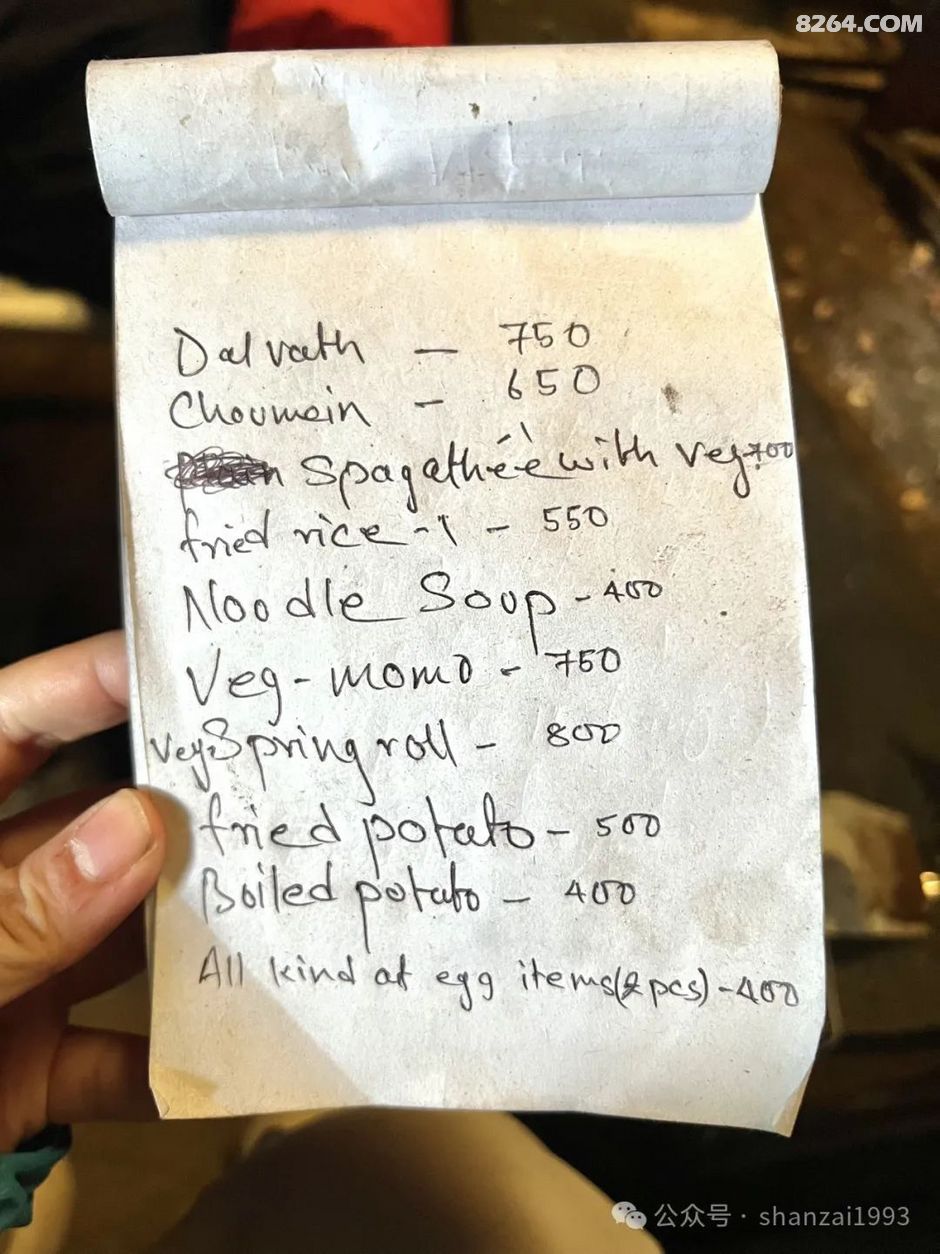 8264.COM
Dal vath — 750
Choumein - 650
Spagathéé with veg 700
fried rice -1 - 550
Noodle Soup - 400
Veg-momo - 750
veg. Spring roll - 800
fried potato - 500
Boiled potato - 400
All kind at egg items (2 pcs) - 400
公众号 · shanzai1993